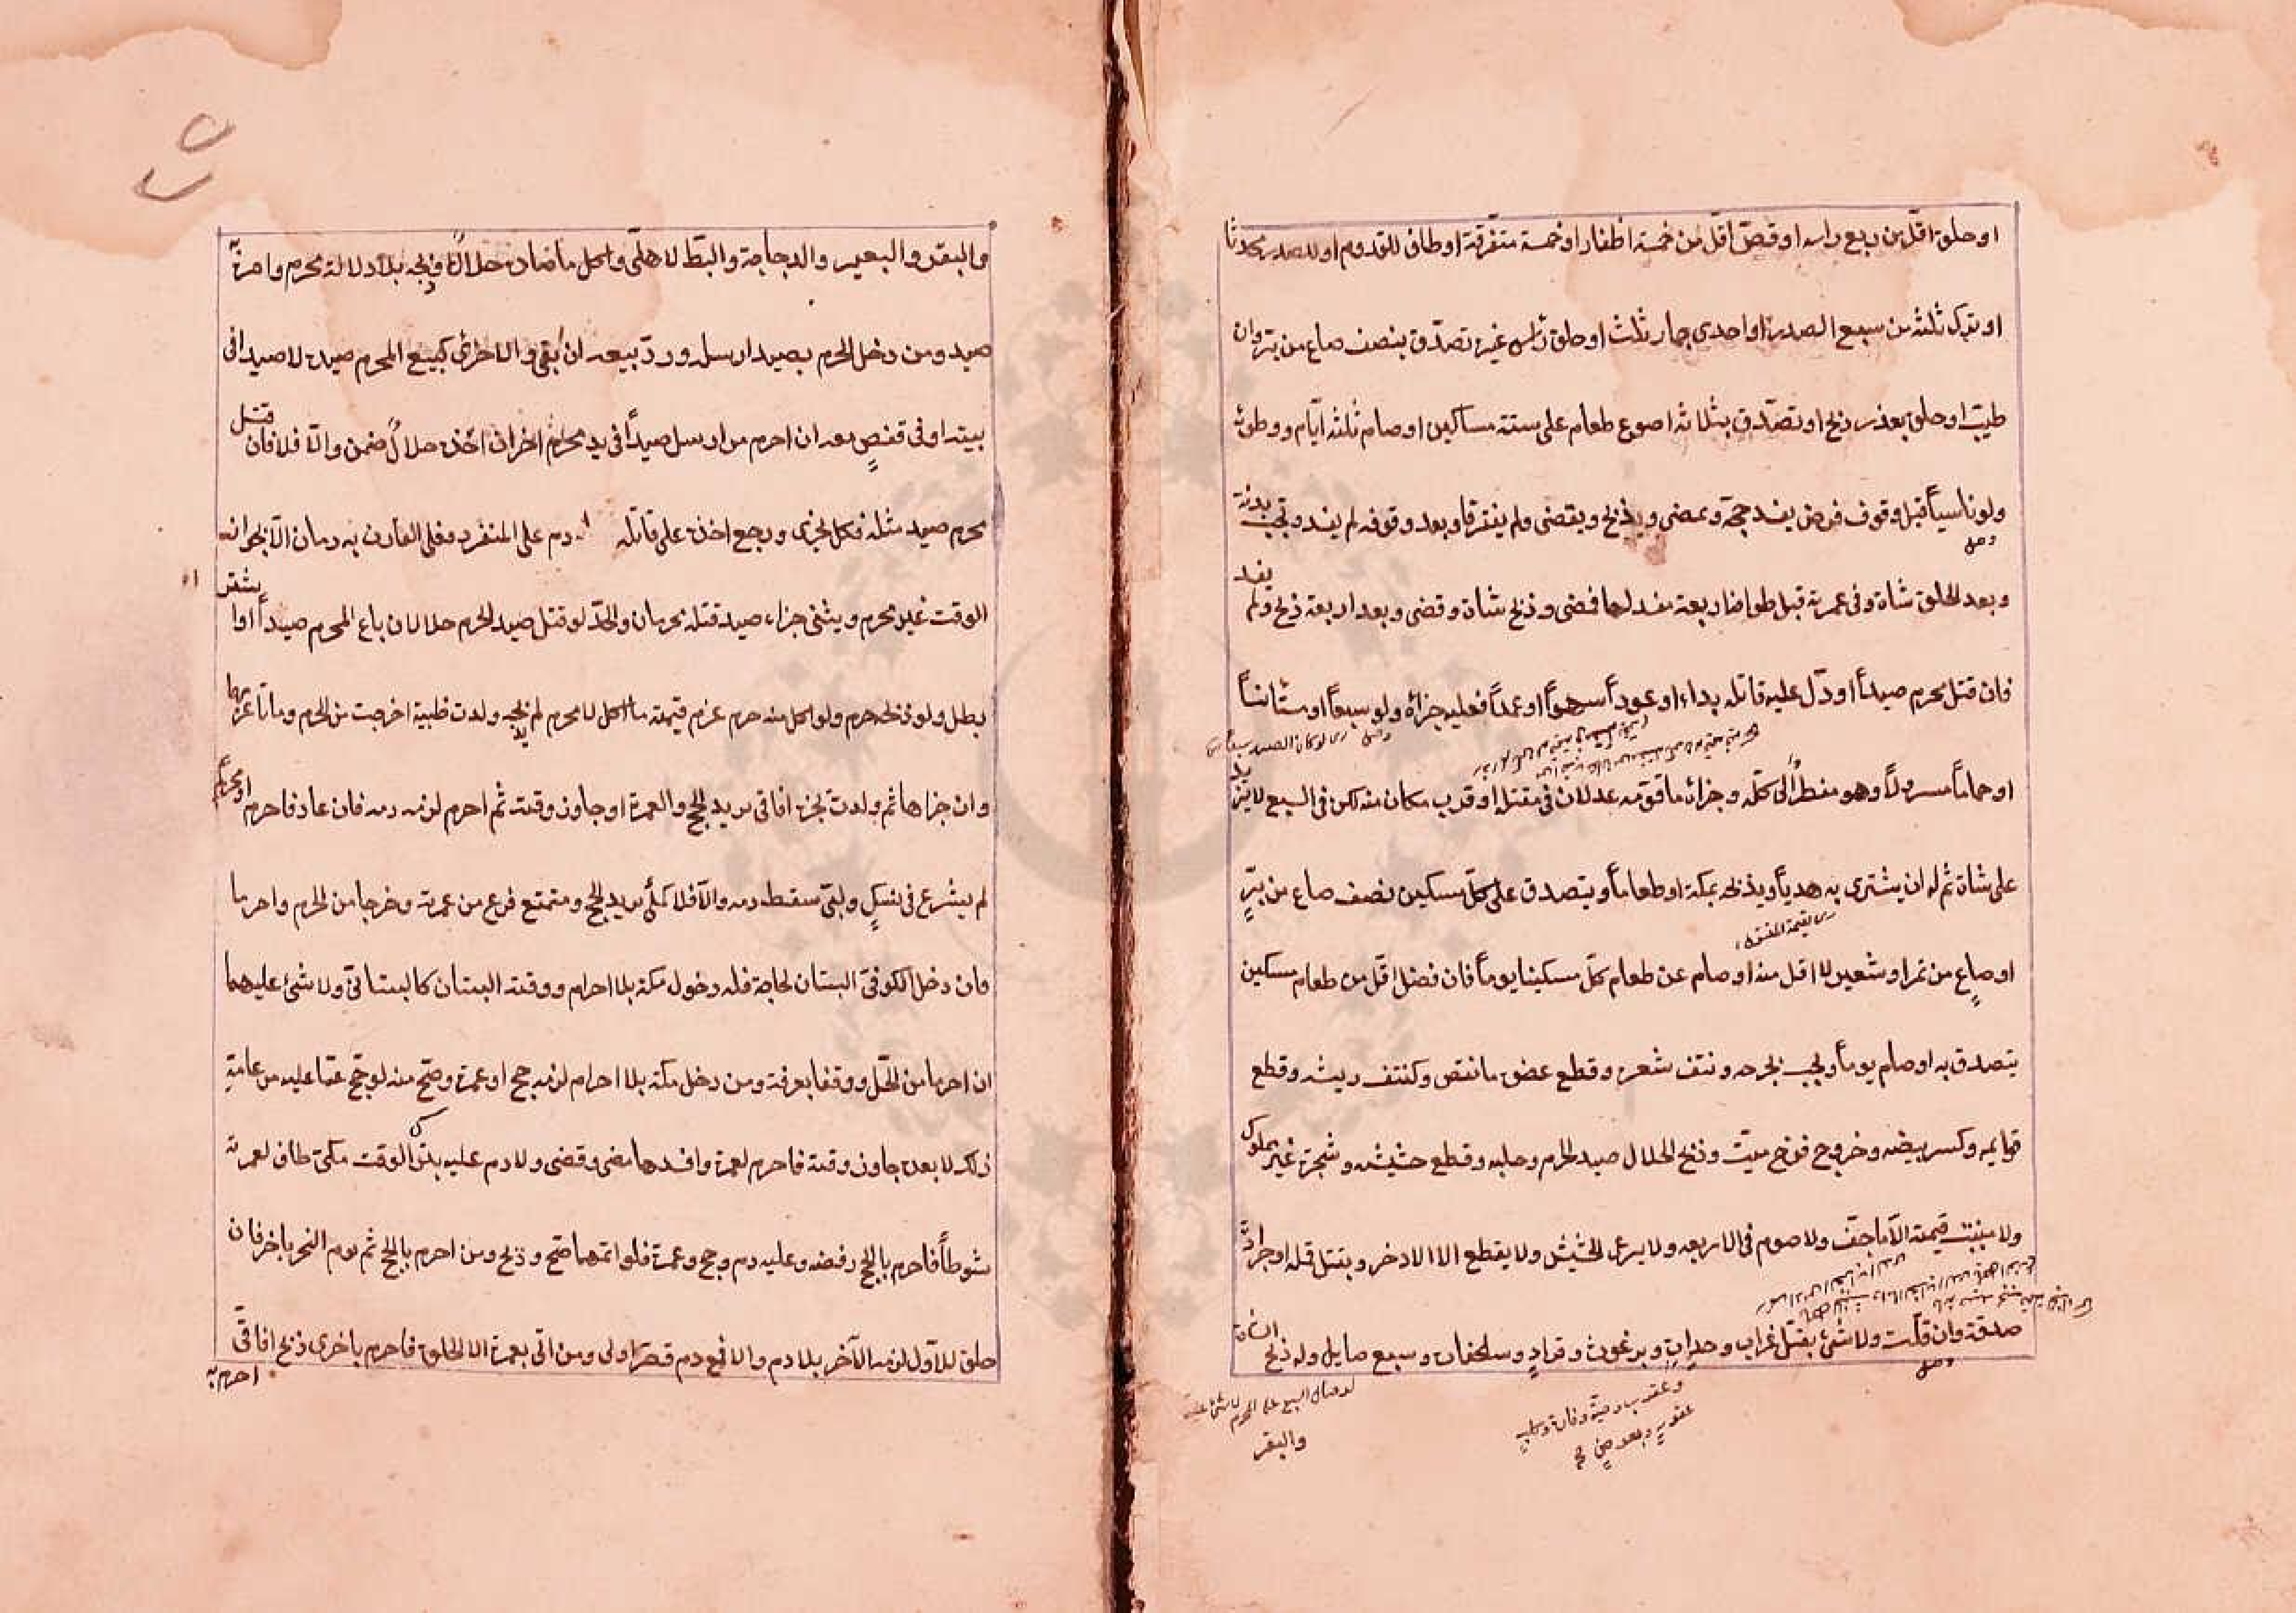 او حلق اقل من ربع راسه او قصّ اقل من خمسة اظفار او خمسة متفرقة او طاف للقدوم او للصدر محدثا
او ترك ثلثة من سبع الصدر او احدى جمار ثلث او حلق راس غيره تصدّق بنصف صاع من بر وان
طيب او حلق بعذر ذبح او تصدّق بثلاثة اصوع طعام على ستة مساكين او صام ثلثة ايّام ووطئه
ولو ناسياً قبل وقوف فرض يفسد حجه ويمضى ويذبح ويقضى ولم يفترقا وبعد وقوفه لم يفسد وتجب بدنة
وبعد الحلق شاة وفى عمرته قبل طوافه اربعة مفسد لها فمضى وذبح شاة وقضى وبعد اربعة ذبح ولم يفسد
فان قتل محرم صيداً او دلّ عليه قاتله بداء او عوداً سهواً او عمداً فعليه جزاؤه ولو سبعاً او مستأنساً
او حماماً مسرولاً وهو مضطر الى اكله وجزاؤه ما قوّمه عدلان فى مقتله او قرب مكان منه لكن فى السبع لا يزيد
على شاة ثم له ان يشترى به هدياً ويذبحه بمكة او طعاماً ويتصدق على كلّ مسكين نصف صاع من برّ
اى بقيمة المقتول
او صاع من تمر او شعير لا اقل منه او صام عن طعام كلّ مسكين يوماً فان فضل اقل من طعام مسكين
يتصدق به او صام يوماً ويجب بجرحه ونتف شعره وقطع عضو ما نقص وكنتف ريشه وقطع
قوايمه وكسر بيضه وخروج فرخ ميّت وذبح الحلال صيد الحرم وحلبه وقطع حشيشه وشجرة غير مملوك
ولا منبت قيمته الا ما جفّ ولا صوم فى الاربعه ولا يرعى الحشيش ولا يقطع الا الاذخر وبقتل قمله او جراد
صدقة وان قلّت ولا شئ بقتل غراب وحداة وبرغوث وقراد وسلحفاة وسبع صايل وله ذبح الشاة
وعقرب وحية وفارة وكلب
عقور وبعوض صح
والبقر
والبقر والبعير والدجاجة والبط الاهلى واكل ما صاده حلال وذبحه بلا دلالة محرم وامره
صيد ومن دخل الحرم بصيد ارسله وردّ بيعه ان بقى والا جزى كبيع المحرم صيده لا صيدا فى
بيته او فى قفص معه ان احرم من ارسل صيداً فى يد محرم اخر ان اخذه حلالاً ضمن والا فلا فان قتل
محرم صيد مثله فكل يجزى ورجع اخذه على قاتله ما به دم على المنفرد فعلى القارن به دمان الا بجوازه
الوقت غير محرم ويثنى جزاء صيد قتله محرمان واتحد لو قتل صيد الحرم حلالان باع المحرم صيداً او اشتراه
بطل ولو ذبحه حرم ولو اكل منه حرم غرم قيمة ما اكل لا محرم لم يذبحه ولدت ظبية اخرجت من الحرم وماتا غرمهما
وان جزاها ثم ولدت لم يجزه افاقى يريد الحج والعمرة او جاوز وقته ثم احرم لزمه دمه فان عاد فاحرم او محرماً
لم يشرع فى نسك ولبّى سقط دمه والا فلا كمكى يريد الحج ومتمتع فرغ من عمرته وخرجا من الحرم واحرما
فان دخل الكوفى البستان لحاجة فله دخول مكة بلا احرام ووقته البستان كالبستانى ولا شئ عليهما
ان احرما من الحلّ ووقفا بعرفة ومن دخل مكة بلا احرام لزمه حج او عمرة وصح منه لو حج عمّا عليه من عامة
ذلك لا بعده جاوز وقته فاحرم لعمرة وافسدها مضى وقضى ولا دم عليه بترك الوقت مكى طاف لعمرته
شوطاً فاحرم بالحج رفضه وعليه دم وحج وعمرة فلو اتمهما صح وذبح ومن احرم بالحج ثم يوم النحر باخر فان
حلق للاول لزمه الآخر بلا دم والا فمع دم قصر اولى ومن اتى بعمرة الا الحلق فاحرم باخرى ذبح افاقى
احرم به